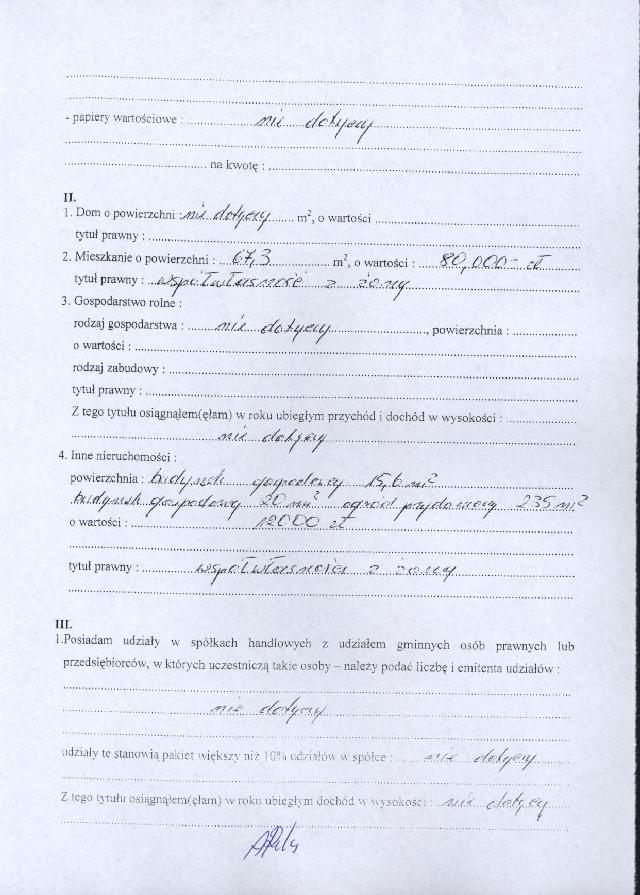 - papiery wartościowe : nie dotyczy
na kwotę :
II.
1. Dom o powierzchni : nie dotyczy m², o wartości
tytuł prawny :
2. Mieszkanie o powierzchni : 67,3 m², o wartości : 80,000- zł
tytuł prawny : współwłasność z żoną
3. Gospodarstwo rolne :
rodzaj gospodarstwa : nie dotyczy , powierzchnia :
o wartości :
rodzaj zabudowy :
tytuł prawny :
Z tego tytułu osiągnąłem(ęłam) w roku ubiegłym przychód i dochód w wysokości :
nie dotyczy
4. Inne nieruchomości :
powierzchnia : budynek gospodarczy 15,6 m²
budynek gospodarczy 20 m² ogród przydomowy 235 m²
o wartości : 12000 zł
tytuł prawny : współwłasność z żoną
III.
1.Posiadam udziały w spółkach handlowych z udziałem gminnych osób prawnych lub
przedsiębiorców, w których uczestniczą takie osoby – należy podać liczbę i emitenta udziałów :
nie dotyczy
udziały te stanowią pakiet większy niż 10% udziałów w spółce : nie dotyczy
Z tego tytułu osiągnąłem(ęłam) w roku ubiegłym dochód w wysokości : nie dotyczy